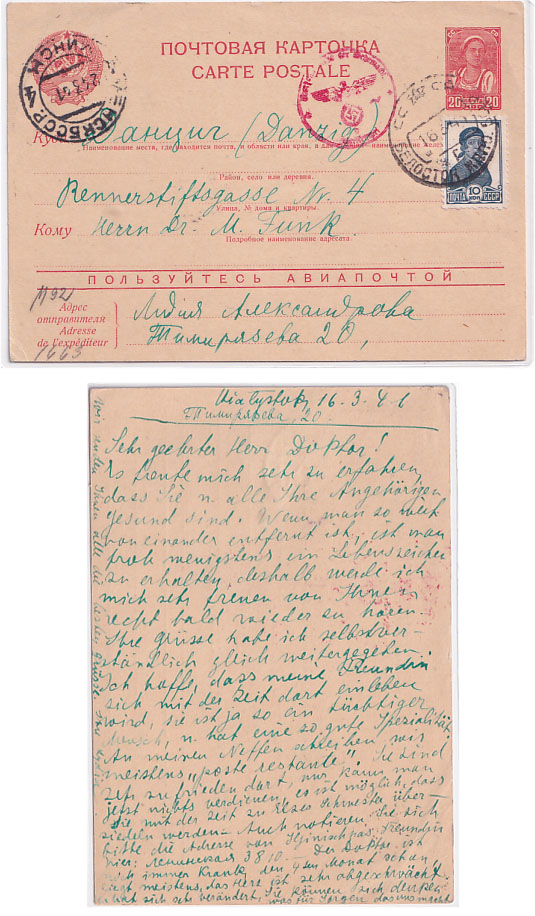 ПОЧТОВАЯ КАРТОЧКА
CARTE POSTALE
20 20
МИНСК
БССР
16
БЕЛОСТОК
ПОЧТА 10 КОП СССР
Куда Данциг (Danzig)
Наименование места, где находится почта, и области или края, а для
Район, село или деревня.
Rennerstiftsgasse Nr. 4
Улица, № дома и квартиры.
Кому Herrn Dr. M. Funk
Подробное наименование адресата
ПОЛЬЗУЙТЕСЬ АВИАПОЧТОЙ
1192
Адрес
отправителя
Adresse
de l'expéditeur
Лидия Александрова
Тимирязева 20,
1663
Bialystok, 16-3-41
Тимирязева, 20
Sehr geehrter Herr Doktor!
Es freute mich sehr zu erfahren,
dass Sie u. alle Ihre Angehörigen
gesund sind. Wenn man so weit
voneinander entfernt ist, ist man
froh wenigstens ein Lebenszeichen
zu erhalten, deshalb werde ich
mich sehr freuen von Ihnen
recht bald wieder zu hören.
Ihre Grüsse habe ich selbstver-
ständlich gleich weitergegeben.
Ich hoffe, dass meine Freundin
sich mit der Zeit dort einleben
wird, sie ist ja so ein tüchtiger
Mensch, u. hat eine so gute Spezialität.
An meinen Neffen schreiben wir
meistens „poste restante". Sie sind
sehr zufrieden dort, nur kann man
jetzt nichts verdienen, es ist möglich, dass
sie mit der Zeit zu Elses Schwester über-
siedeln werden. Auch notieren Sie sich
bitte die Adresse von Freundin
hier: Ленинская 38 10 - Der Doktor ist
noch immer krank, den 4ten Monat schon,
liegt meistens, das Herz ist sehr abgeschwächt.
Er hat sich sehr verändert, Sie können sich denken
was für Sorgen das uns macht